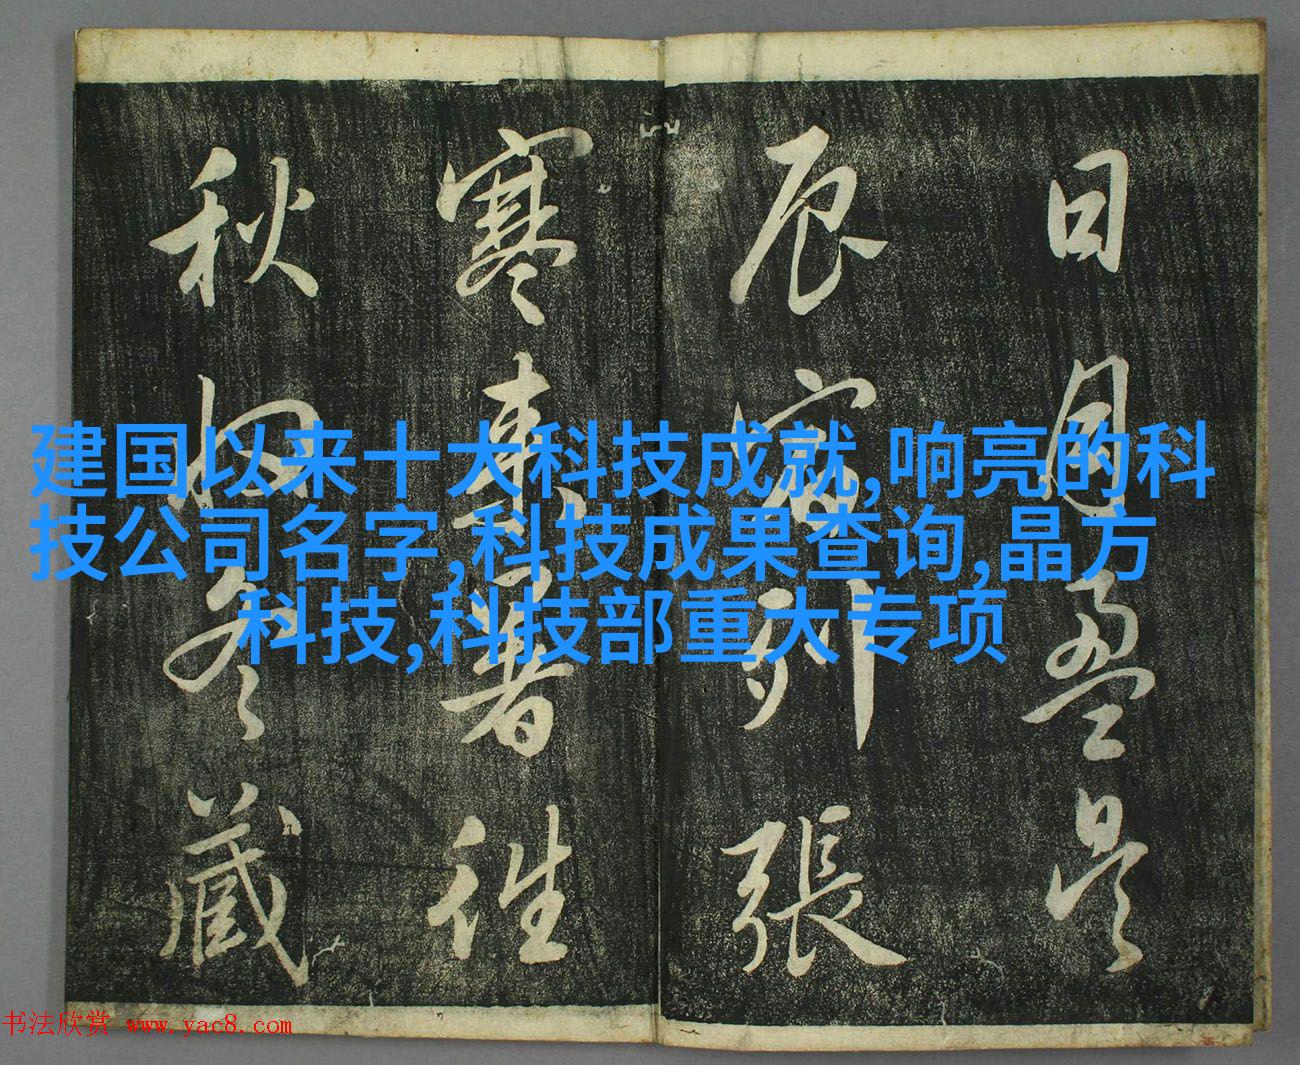 日月盈昃
辰宿列張
寒来暑往
秋收冬藏
建国以来十大科技成就,响亮的科
技公司名字,科技成果查询,晶方
科技,科技部重大专项
书法欣赏 www.yac8.com